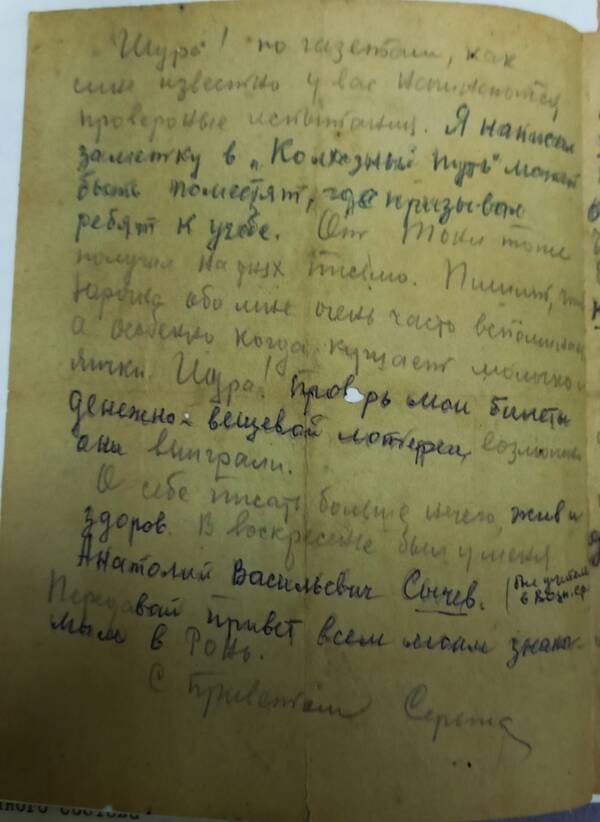 Шура! по газетам, как
мне известно у вас начинаются
провероные испытания. Я написал
заметку в „Колхозный путь" может
быть поместят, где призывал
ребят к учебе. От Токи тоже
получил на днях письмо. Пишит, что
Юрочка обо мне очень часто вспоминает
а особенно когда кушает молочко и
яички. Шура! Проверь мои билеты
денежной вещевой лотереи, возможно
они выиграли.
О себе писать больше нечего, жив и
здоров. В воскресение был у меня
Анатолий Васильевич Сычев. (был учителем
в Возн. ср
Передавай привет всем моим знако-
мым в
С приветом Сережа
ного